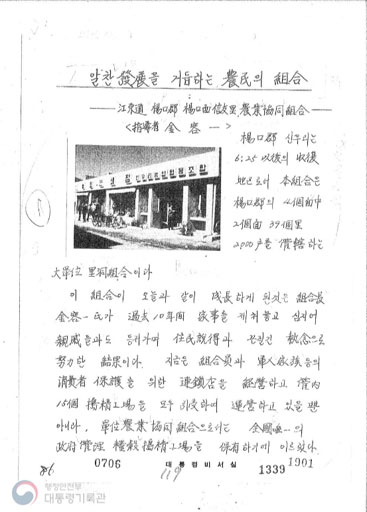 알찬 發展을 거듭하는 農民의 組合
江原道 楊口郡 楊口面 農業協同組合
<指導者 金容一>
楊口郡 는
6.25 以後의 收復
地区로서 本組合은
楊口郡의 4個面中
2個面 39個里
2000戶를 管轄하는
大單位 里洞組合이다
이 組合이 오늘과 같이 成長하게 된것은 組合長
金容一氏가 過去 10年間 家事를 제쳐놓고 심지어
住民說得과 한 執念으로
努力한 結果이다. 지금은 組合員과 軍人家族들의
消費者 保護를 위한 連鎖店을 経営하고 管內
15個 搗精工場을 모두 引受하여 運営하고 있을 뿐
아니라, 單位農業協同組合으로서는 全國唯一의
政府管理 糧穀搗精工場을 保有하기에 이르렀다.
0706
대통령비서실
119
1339
1901
행정안전부
대통령기록관